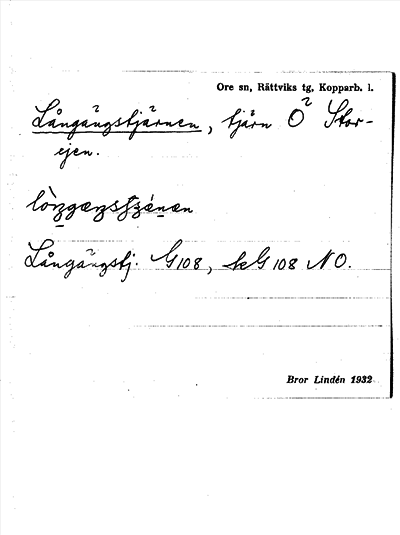 Ore sn, Rättviks tg, Kopparb. l.
Långängstjärnen, tjärn Ö Stor-
ejen.
Långängstj. G108, skG 108 NO.
Bror Lindén 1932